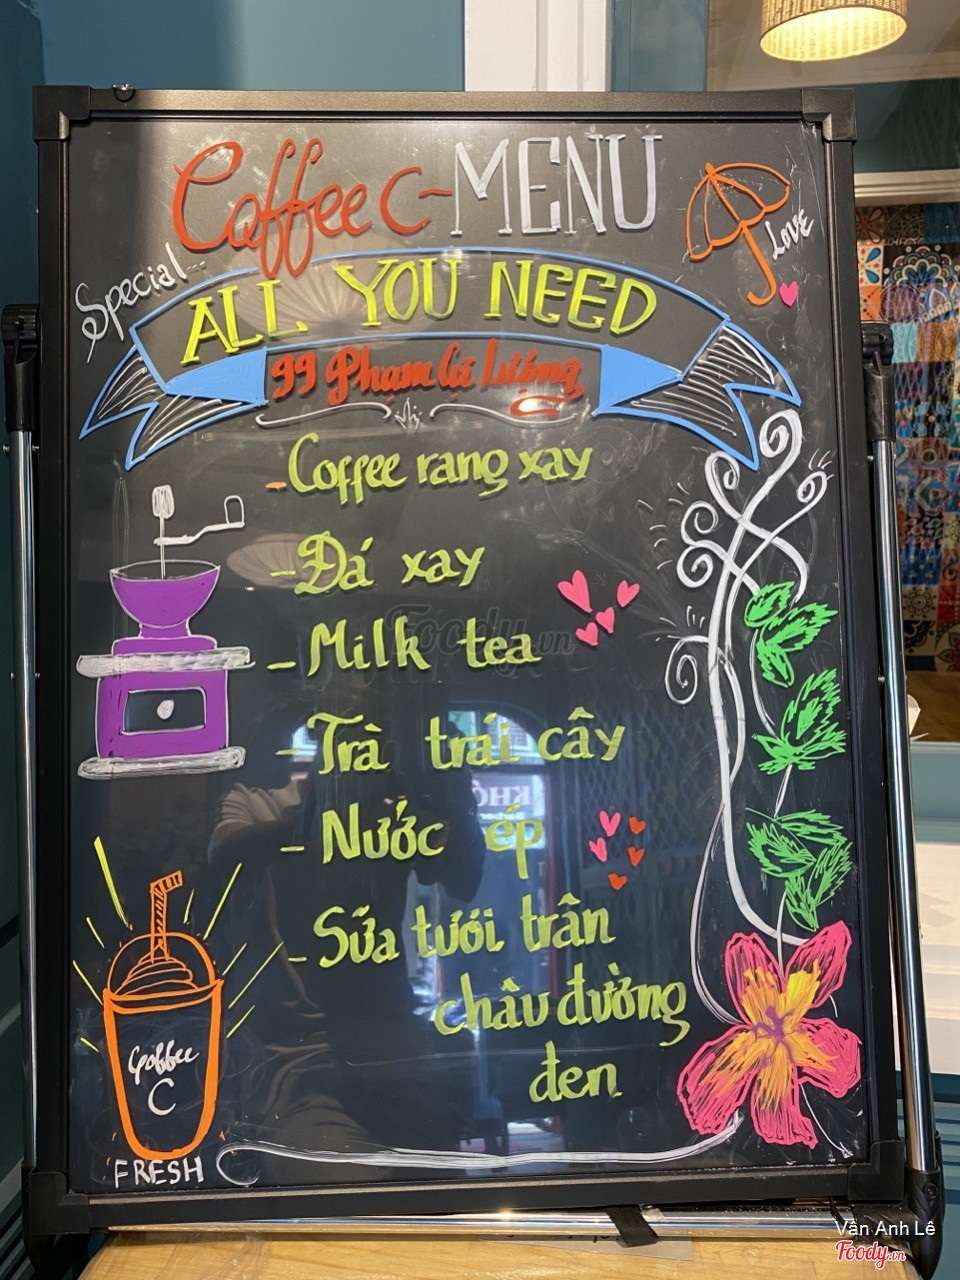 Coffee C-MENU
LOVE
Special...
ALL YOU NEED
99 Phạm Cự Lượng
-Coffee rang xay
-Đá xay
-Milk tea
-Trà trái cây
-Nước ép
-Sữa tươi trân
châu đường
đen
Coffee
C
FRESH
Foody.vn
Vân Anh Lê
Foody.vn